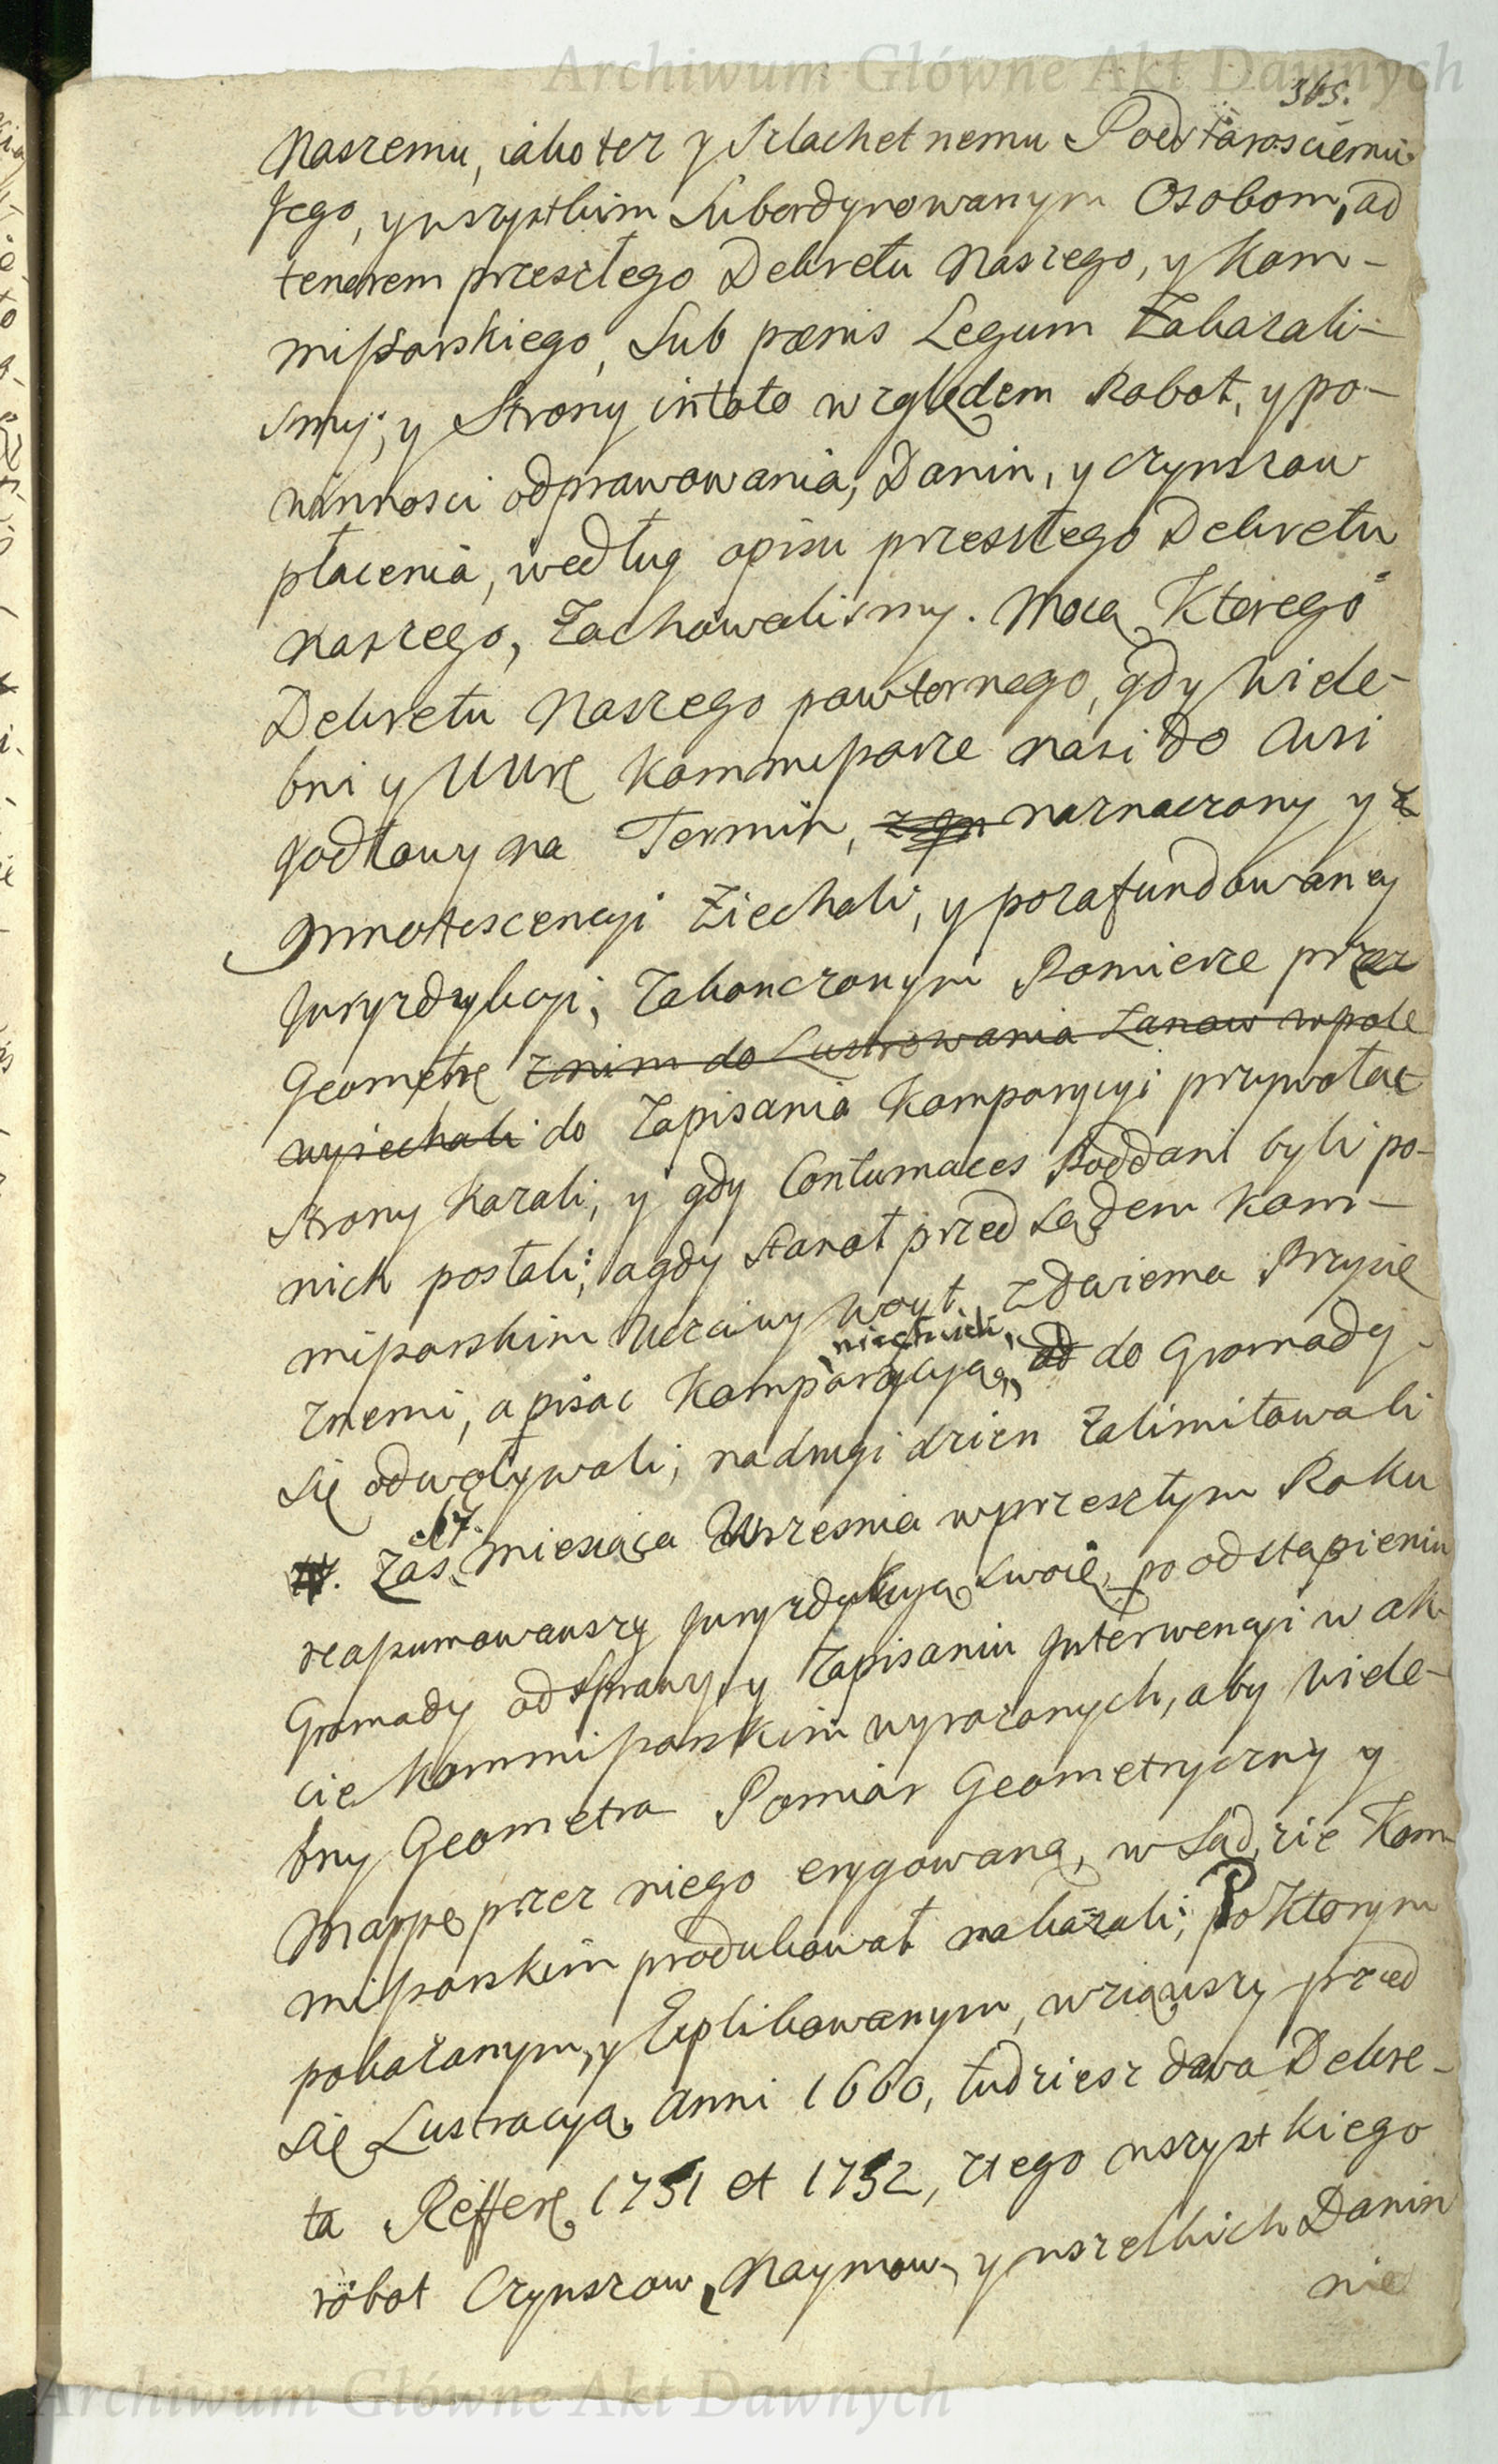 Archiwum Główne Akt Dawnych
365.
Naszemu, iako tez y Szlachetnemu Podstarosciemu
Jego, y wszystkim Subordynowanym Osobom, ad
tenorem przeszłego Dekretu Naszego, y Kom-
missarskiego, Sub pænis Legum Zakazali-
smy; y Strony in toto względem Robot, y po-
winnosci odprawowania, Danin, y czynszow
płacenia, według opisu przeszłego Dekretu
naszego, Zachowalismy. Mocą Ktorego
Dekretu Naszego powtornego, gdy Wiele-
bni y UUrę Kommissarze nasi do Wsi
Jodłowy na Termin, naznaczony y z
Jnnotescencyi Ziechali, y pozafundowaney
Juryzdykcyi, Zakonczonym Pomierze przez
Geometrę z nim do Lustrowania Łanow w pole
wyiechali do Zapisania Komparycyi przywołac
Strony Kazali; y gdy Contumaces Poddani byli po-
nich postali; a gdy Stanoł przed Sądem Kom-
missarskim Uczciwy Woyt z dwiema Przysię
znemi, a pisac Komparycyją niechcieli, od do Gromady
się odwoływali, na drugi dzien Zalimitowali
17. Zas Miesiąca Wrzesnia w przeszłym Roku
reassumowawszy Juryzdykcyą Swoię, po odstąpieniu
Gromady od Sprawy, y Zapisaniu Jnterwencyi w ak-
cie Kommissarskim wyrazonych, aby Wiele-
bny Geometra Pomiar Geometryczny y
Mappę przez niego erygowaną, w Sądzie Kom-
missarskim produkował nakazali; Po Ktorym
pokazanym, y Explikowanym, wziąwszy przed
się Lustracyą Anni 1660, tudziesz dwa Dekre-
ta Refferę 1751 et 1752, z tego wszystkiego
robot Czynszow, Naymow, y wszelkich Danin
nie
Archiwum Główne Akt Dawnych